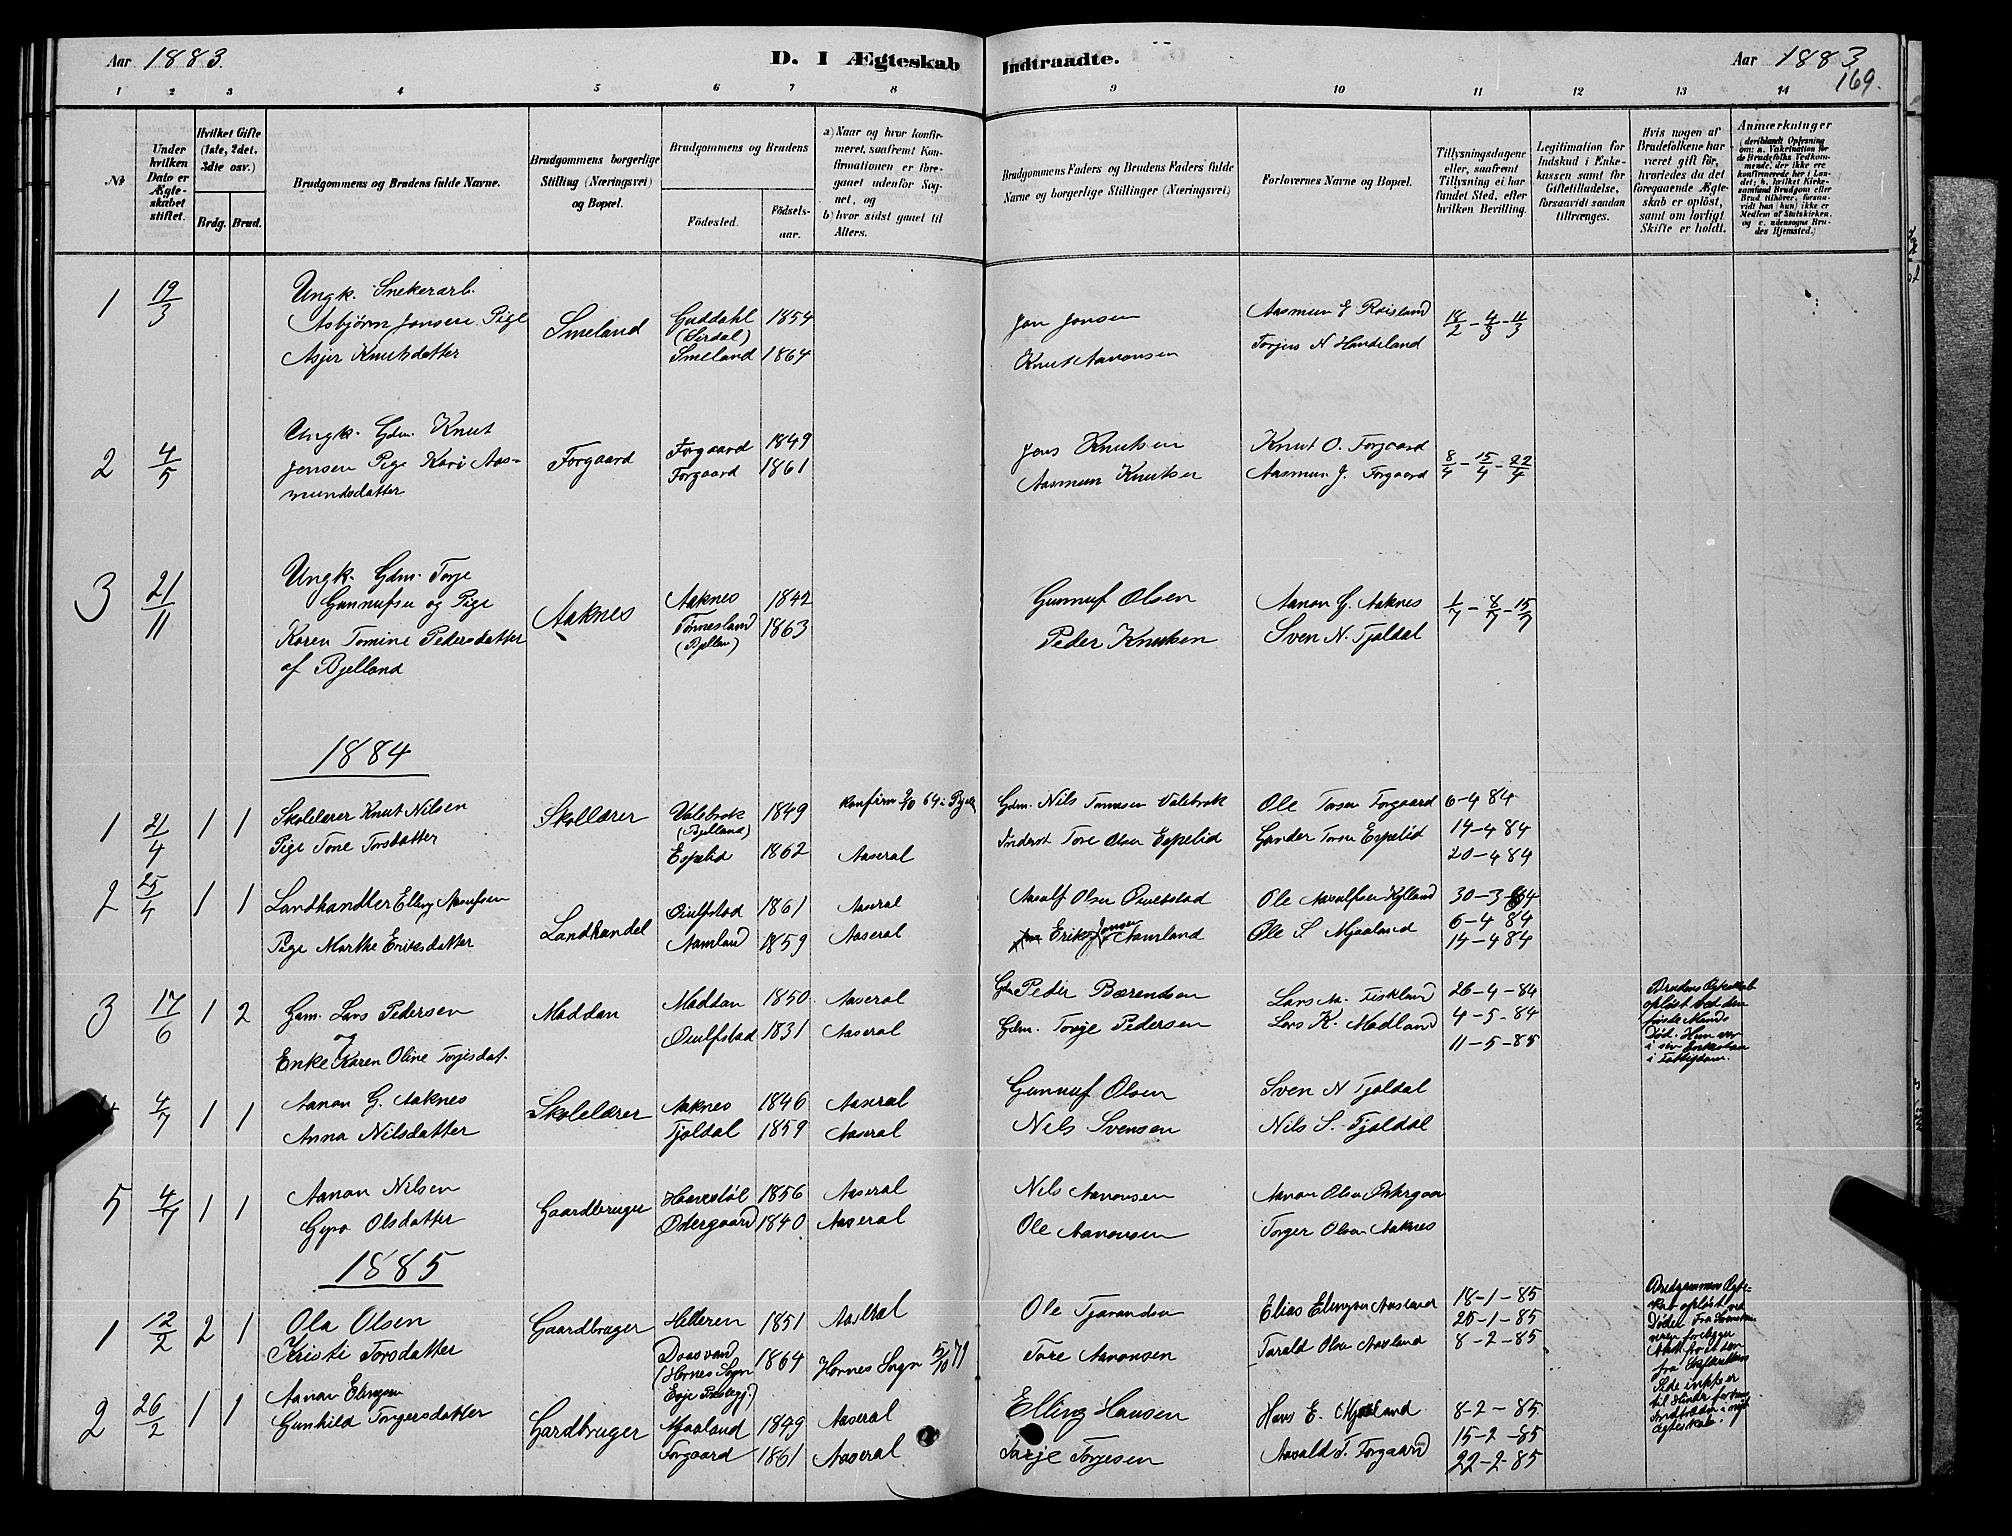 Aar 1883.
D. I Ægteskab Indtraadte.
Aar 1883
169.
1 2 3 4 5 6 7 8 9 10 11 12 13 14
№
Under hvilken Dato er Ægteskabet stiftet.
Hvilket Gifte (1ste, 2det, 3die osv.)
Brdg. Brud.
Brudgommens og Brudens fulde Navne.
Brudgommens borgerlige Stilling (Næringsvei) og Bopæl.
Brudgommens og Brudens
Fødested.
Fødselsaar.
a) Naar og hvor konfirmeret, saafremt Konfirmationen er foregaaet udenfor Sognet, og
b) hvor sidst gaaet til Alters.
Brudgommens Faders og Brudens Faders fulde Navne og borgerlige Stillinger (Næringsvei)
Forlovernes Navne og Bopæl.
Tillysningsdagene eller, saafremt Tillysning ei har fundet Sted, efter hvilken Bevilling.
Legitimation for Indskud i Enkekassen samt for Giftetilladelse, forsaavidt saadan tiltrænges.
Hvis nogen af Brudefolkene har været gift før, hvorledes da det foregaaende Ægteskab er opløst, samt om lovligt Skifte er holdt.
Anmærkninger
1 19/3 Ungk. Snekerarb. Asbjørn Jonsen Pige Asjer Knutsdatter
Smeland
Guddahl (Sirdal) 1854
Smeland 1864
Jon Jonsen
Knut Aanonsen
Aasmun G Røisland
Torjus N Handeland
18/2 - 4/3 - 11/3
2 4/5 Ungk. Gdm. Knut Jensen Pige Kari Aasmundsdatter
Forgaard
Forgaard 1849
Forgaard 1861
Jens Knutsen
Aasmun Knutsen
Knut O. Forgaard
Aasmun J. Forgaard
8/4 - 15/4 - 22/4
3 21/11 Ungk. Gdm. Torje Gunnufsen og Pige Karen Tomine Pedersdatter af Bjelland
Aaknes
Aaknes 1842
Tønnesland (Bjellan) 1863
Gunnuf Olsen
Peder Knutsen
Aanon G. Aaknes
Sven N. Tjaldal
1/7 - 8/7 - 15/7
1884
1 21/4 1 1 Skolelærer Knut Nilsen
Pige Tone Torsdatter
Skollærer
Valebrok (Bjelland) 1849
Espelid 1862
Aaseral
Gdm. Nils Tomesen Valebrok
Inderst Tore Olsen Espelid
Ole Torsen Forgaard
Gunder Torsen Espelid
6-4 84
14-4 84
20-4 84
2 25/4 1 1 Landhandler Elling Aasulfsen
Pige Marthe Eriksdatter
Landhandel
Øiulfstad 1861 Aaseral
Aamland 1859 Aaseral
Aasulf Olsen Øiulvstad
Erik Jensen Aamland
Ole Aasulfsen Kylland
Ole S Mjaaland
30-3-84
6-4 84
14-4 84
3 17/6 1 2 Gam. Lars Pedersen
og
Enke Karen Oline Torjesdat.
Maddan
Maddan 1850. Aaseral
Øiulfstad 1831 Aaseral
Gdm Peder Bærendsen
Gdm. Torje Pedersen
Lars M. Eiskland
Lars K. Madland
26-4-84
4-5-84
11-5-85
Brudens Ægteskab opløst ved den første Mands Død. Hun var i sin Enkestan i Fattigdom.
4 4/7 1 1 Aanon G. Aaknes
Anna Nilsdatter
Skolelærer
Aaknes 1846 Aaseral
Tjaldal 1859 Aaseral
Gunnuf Olsen
Nils Svensen
Sven N Tjaldal
Nils S. Tjaldal
5 4/7 1 1 Aanon Nilsen
Gyro Olsdatter
Gaardbruger
Haavestøl 1856 Aaseral
Østergaard 1840 Aaseral
Nils Aanonsen
Ole Aanonsen
Aanon Olsen Østergaar
Torger Olsen Aaknes
1885
1 12/2 2 1 Ola Olsen
Kristi Torsdatter
Gaardbruger
Helleren 1851 Aaseral
Daasvand (Hornes Sogn Evje Prestegj.) 1864 Hornes Sogn 5/10 79
Ole Tjøranden
Tore Aanonsen
Elias Elingsen Aasland
Tarald Olsen Aasland
18-1-85
25-1-85
8-2-85
Brudgommens Ægteskab opløst ved Døden
2 26/2 1 1 Aanon Elingsen
Gunhild Torgersdatter
Gardbruger
Mjaaland 1849 Aaseral
Forgaard 1861 Aaseral
Elling Hansen
Tarje Torjesen
Hans E. Mjaaland
Aavald T. Forgaard
8-2-85
15-2-85
22-2-85